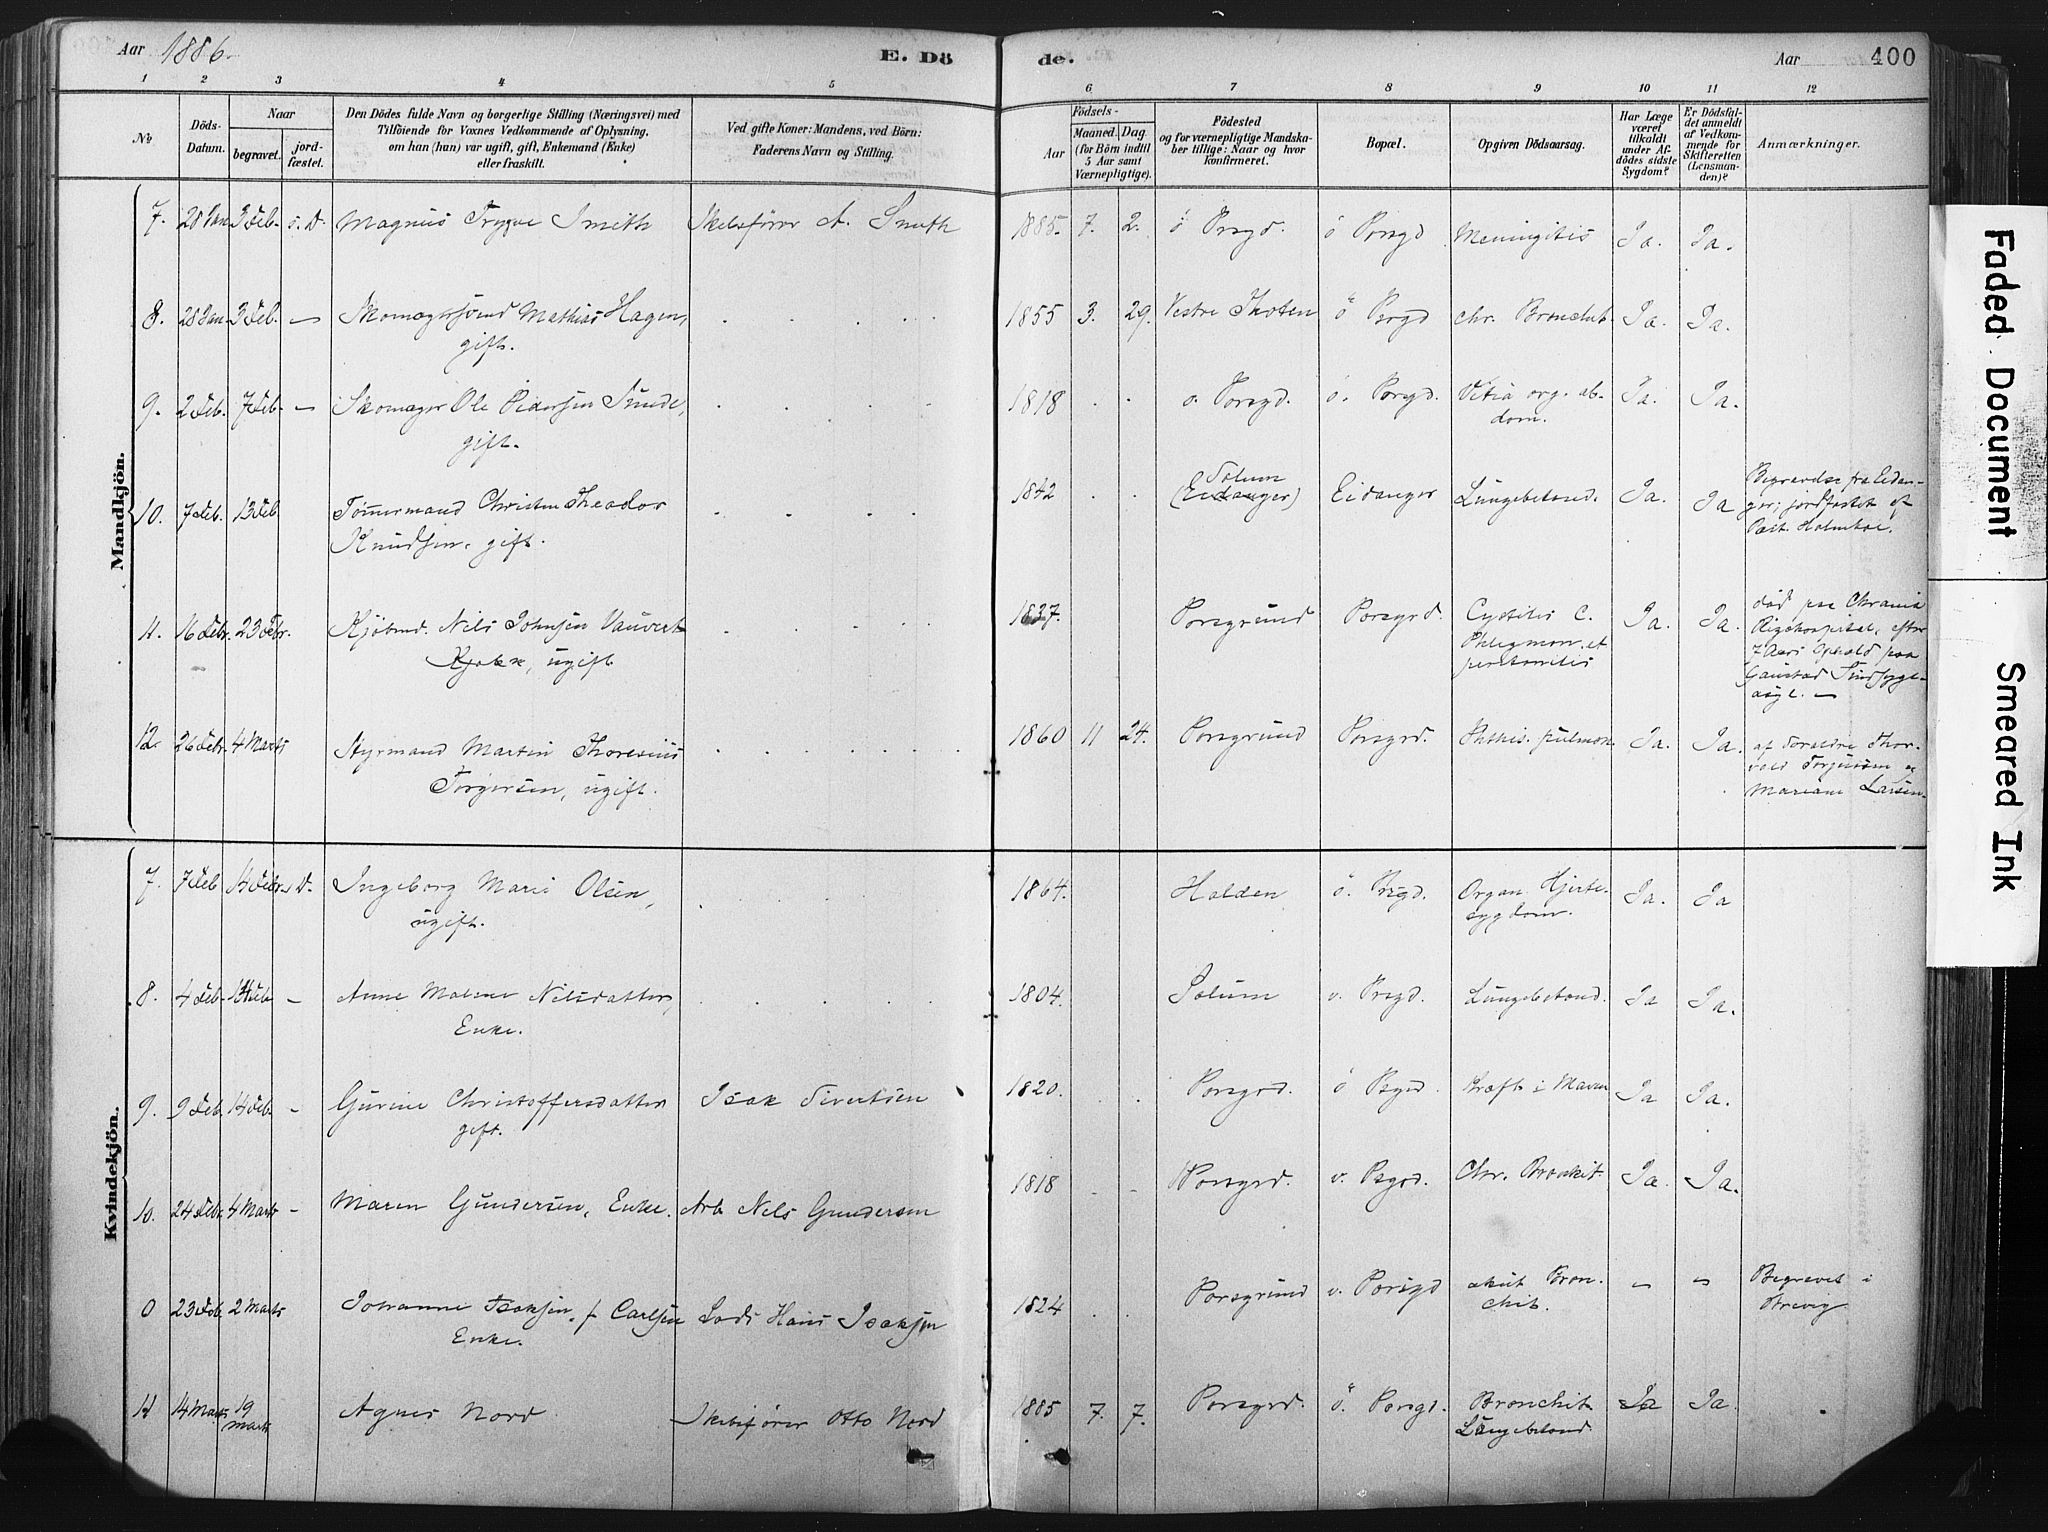 Aar 1886. E. Dö
de. Aar 400
1 2 3 4 5 6 7 8 9 10 11 12
No
Döds-Datum.
Naar
begravet.
jord-fæstet.
Den Dödes fulde Navn og borgerlige Stilling (Næringsvei) med
Tilföiende for Voxnes Vedkommende af Oplysning,
om han (hun) var ugift, gift, Enkemand (Enke)
eller fraskilt.
Ved gifte Koner: Mandens, ved Börn:
Faderens Navn og Stilling.
Födsels-
Aar
Maaned. Dag.
(for Börn indtil
5 Aar samt
Værnepligtige).
Födested
og for værnepligtige Mandska-
ber tillige: Naar og hvor
konfirmeret.
Bopæl.
Opgiven Dödsaarsag.
Har Læge
været
tilkaldt
under Af-
dödes sidste
Sygdom?
Er Dödsfal-
det anmeldt
af Vedkom-
mende for
Skifteretten
(Lensman-
den)?
Anmærkninger.
Mandkjön.
7. 28 Jan 3 Feb. s. D. Magnus Trygve Smith Skibsförer A. Smith 1885. 7. 2. ö Prsgd. ö Porsgd Meningitis Ja. Ja.
8. 28 Jan. 3 Feb. — Skomagersvend Mathias Hagen, 1855 3. 29. Vestre Thoten ö Porsgd chr. Bronchit. Ja. Ja.
gift.
9. 2 Feb. 7 Feb. — Skomager Ole Pedersen 1818 ö. Porsgd. ö. Porsgd. Vitia org. ab-
dom. Ja. Ja.
gift.
10. 7 Feb. 13 Feb Tömmermand Christen Theodor
Knudsen. gift. 1842 Solum
(Eidanger) Eidanger Lungebetænd. Ja. Ja
Begravelse fra Eidan-
ger; jordfæstet af
Past. Holmboe.
11. 16 Febr. 23 Febr. Kjöbmd. Nils Johnsen Vauvert
ugift 1837. Porsgrund Porsgrd. Cystitis C.
Phlegmon. et
peritonitis Ja. Ja.
död paa Chrania
Rigshospital, efter
7 Aars Ophold paa
Gaustad Sindsyge-
asyl. —
12. 26 Febr. 4 Marts Styrmand Martin Thoresius
Torgersen, ugift. 1860 11 24. Porsgrund Porsgrd. Phthis. pulmon. Ja. Ja.
af Forældre Thor-
vald Torgersen og
Mariane Larsen.
Kvindekjön.
7. 7 Feb 14 Febr. s. D. Ingeborg Marie Olsen,
ugift. 1864. Halden ö. Prsgd. Organ. Hjerte-
sygdom. Ja. Ja
8. 4 Feb. Feb — Anne Malene Nilsdatter,
Enke. 1804. Solum v. Prsgd. Lungebetænd. Ja Ja.
9. 9 Feb. 14 Feb. — Gurine Christoffersdatter
gift. Isak Sivertsen 1820. Porsgrd. ö Psgrd. Kræft i Maven Ja Ja.
10. 24 Febr. 4 Marts — Maren Gundersen, Enke. Arb. Nils Gundersen 1818 Porsgrd. v. Psgrd. Chr. Bronkit. Ja. Ja.
0 23 Feb. 2 Marts Johanne Isaksen, f Carlsen
Enke. Lods Hans Isaksen 1824 Porsgrund v. Porsgd akut Bron-
chit. — — Begravet i
Brevig
11 14 Marts 19
Marts Agnes Nord Skibsförer Otto Nord 1885 7. 7. Porsgrd. ö. Porsgd. Bronchit
Lungebetænd. Ja Ja.
Faded Document
Smeared Ink